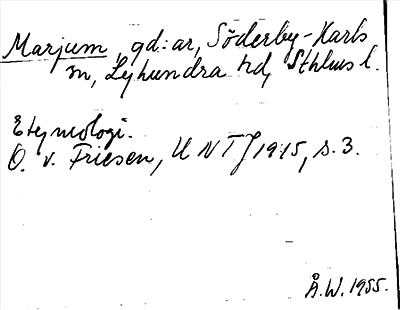 Marjum, gd:ar, Söderby-Karls
sn, Lyhundra hd, Sthlms l.
Etymologi.
O. v. Friesen, UNTJ 1915, s. 3.
Å.W. 1955.